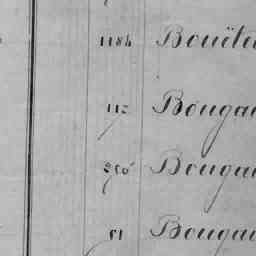 1184 Bouëte
112 Bougau
Bougau
51 Bougau